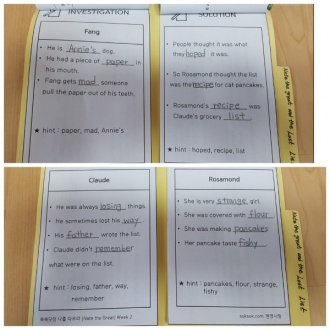 INVESTIGATION
Fang
• He is Annie's dog.
• He had a piece of paper in
his mouth.
• Fang gets mad someone
pull the paper out of his teeth.
★ hint : paper, mad, Annie's
SOLUTION
• People thought it was what
they hoped it was.
• So Rosamond thought the list
was the recipe for cat pancakes.
• Rosamond's recipe was
Claude's grocery list
★ hint : hoped, recipe, list
Nate the great and the Lost List
Claude
• He was always losing things.
• He sometimes lost his way.
• His father wrote the list.
• Claude didn't remember
what were on the list.
★ hint : losing, father, way,
remember
(Nate the Great) Week 2
Rosamond
• She is very strange girl.
• She was covered with flour
• She was making pancakes
• Her pancake taste fishy
★ hint : pancakes, flour, strange,
fishy
Nate the great and the Lost List